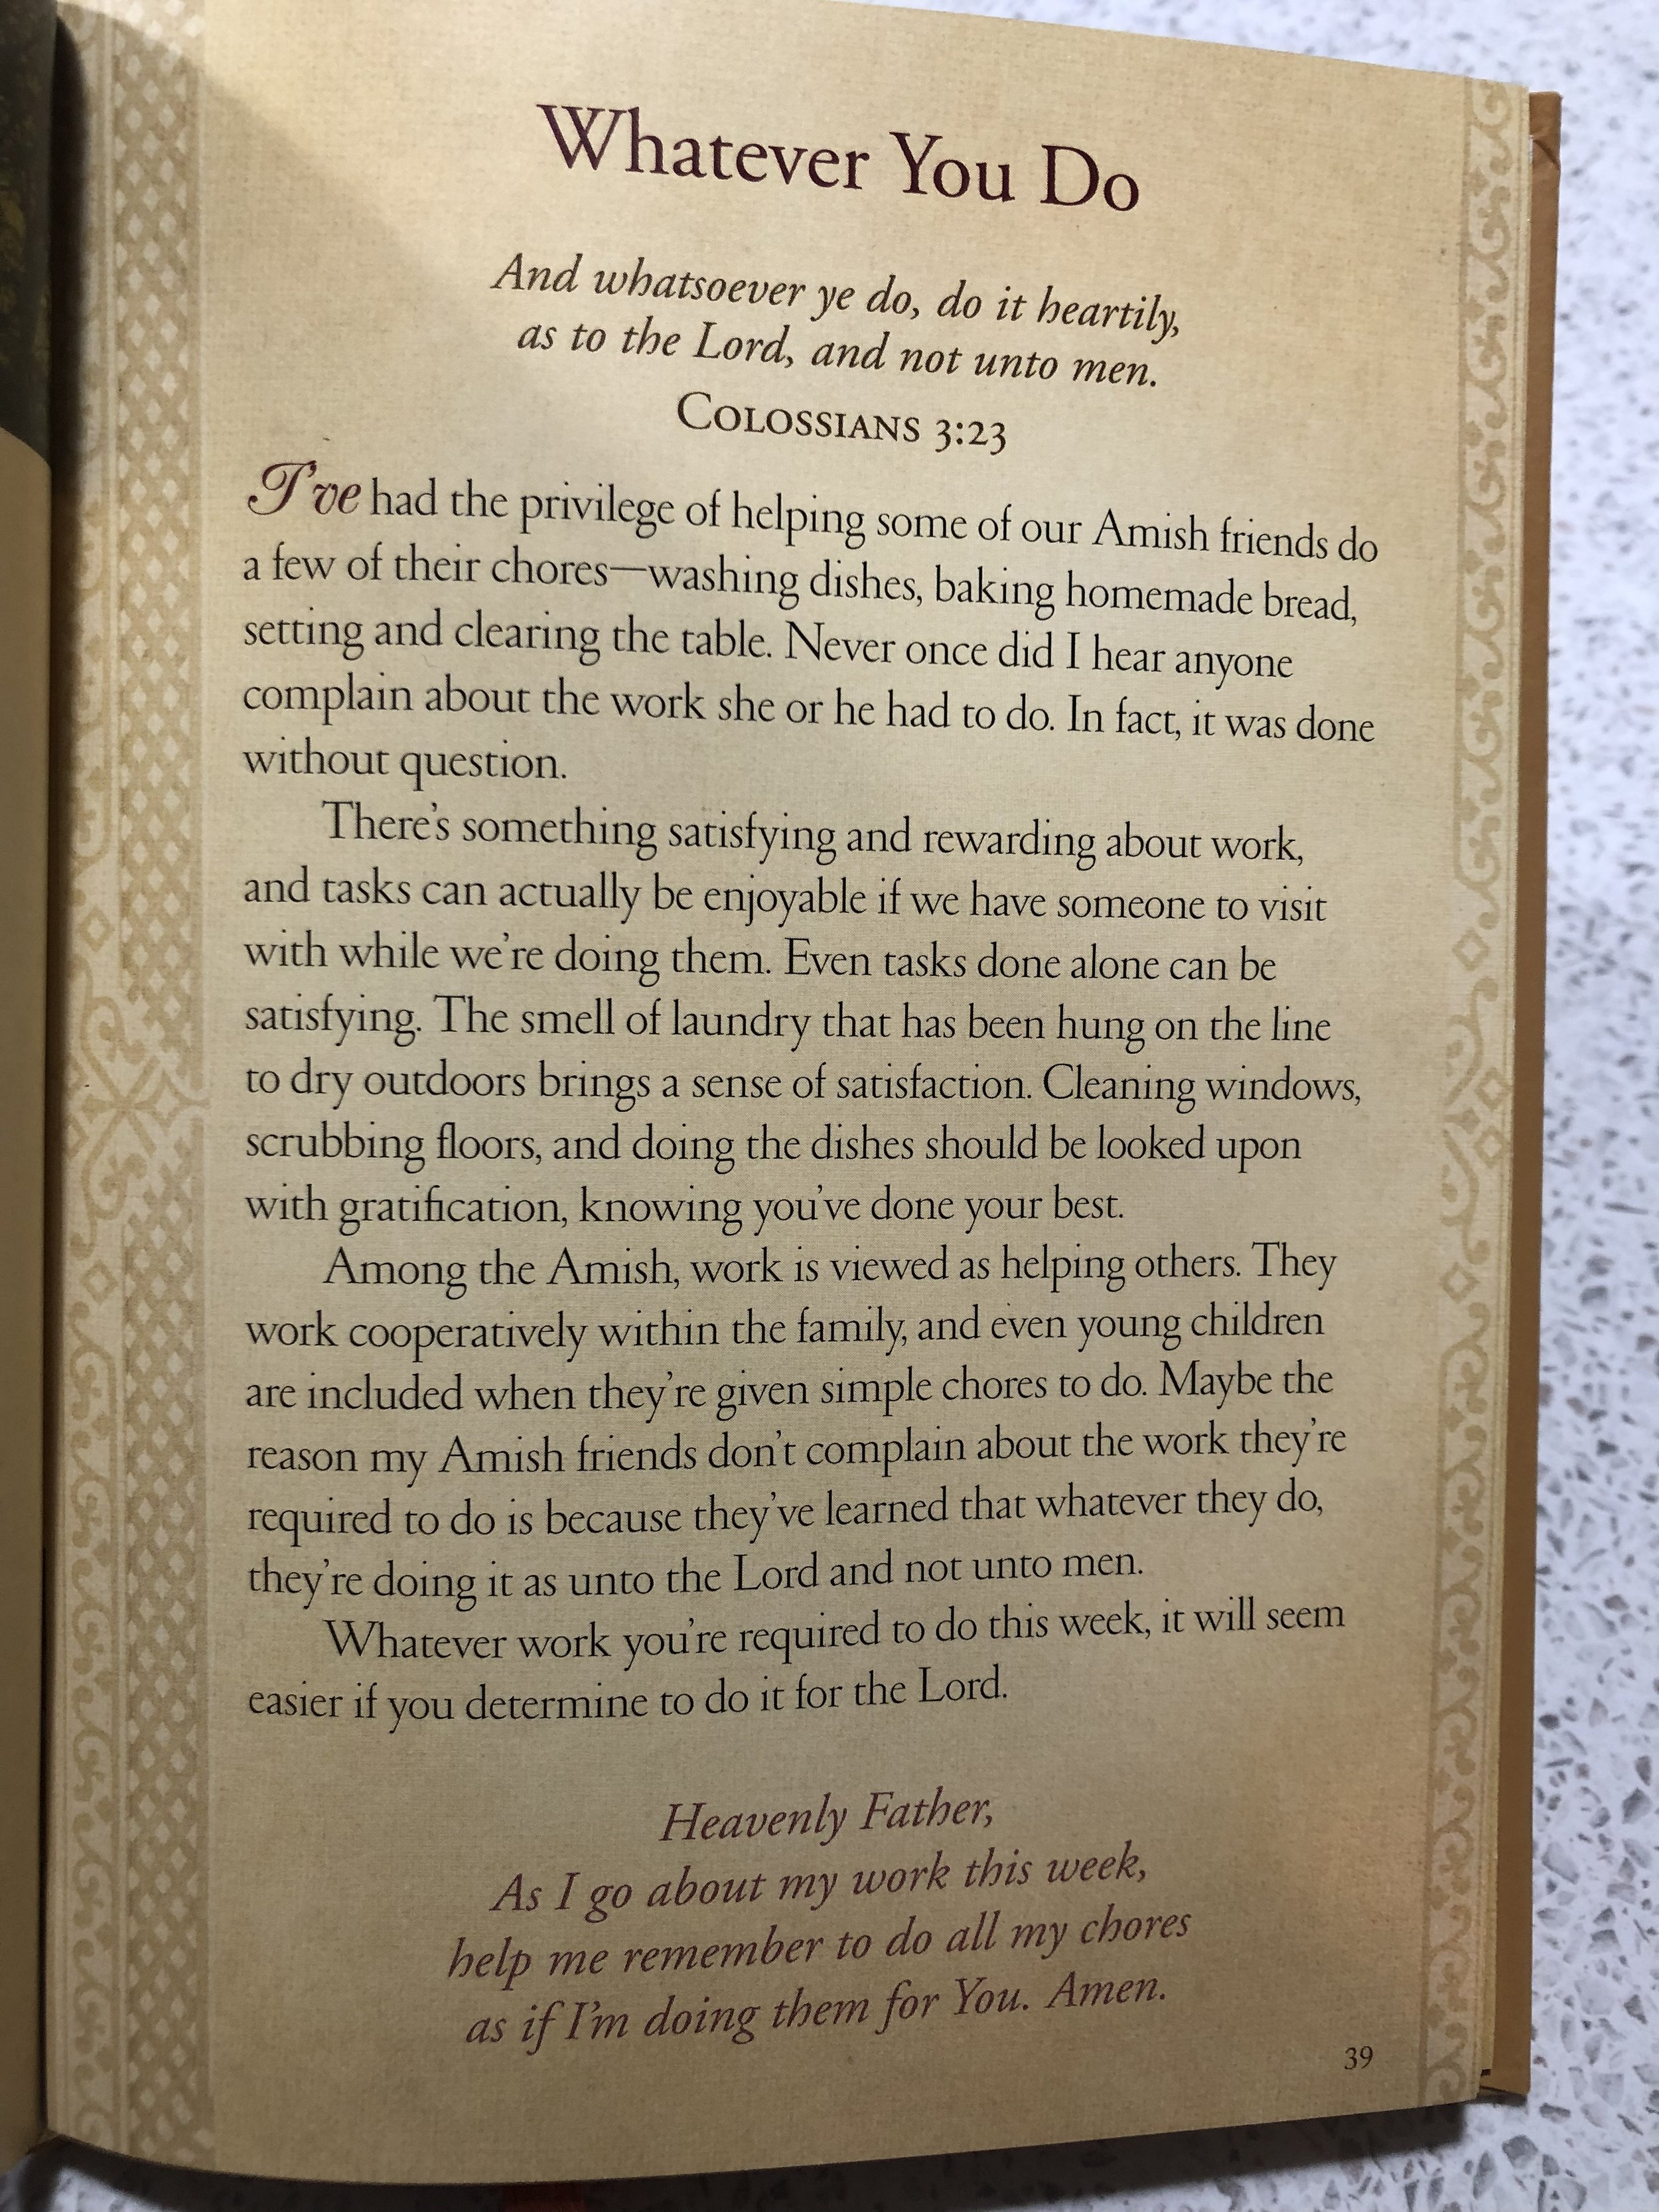 Whatever You Do
And whatsoever ye do, do it heartily,
as to the Lord, and not unto men.
Colossians 3:23
I've had the privilege of helping some of our Amish friends do
a few of their chores—washing dishes, baking homemade bread,
setting and clearing the table. Never once did I hear anyone
complain about the work she or he had to do. In fact, it was done
without question.
There's something satisfying and rewarding about work,
and tasks can actually be enjoyable if we have someone to visit
with while we're doing them. Even tasks done alone can be
satisfying. The smell of laundry that has been hung on the line
to dry outdoors brings a sense of satisfaction. Cleaning windows,
scrubbing floors, and doing the dishes should be looked upon
with gratification, knowing you've done your best.
Among the Amish, work is viewed as helping others. They
work cooperatively within the family, and even young children
are included when they're given simple chores to do. Maybe the
reason my Amish friends don't complain about the work they're
required to do is because they've learned that whatever they do,
they're doing it as unto the Lord and not unto men.
Whatever work you're required to do this week, it will seem
easier if you determine to do it for the Lord.
Heavenly Father,
As I go about my work this week,
help me remember to do all my chores
as if I'm doing them for You. Amen.
39